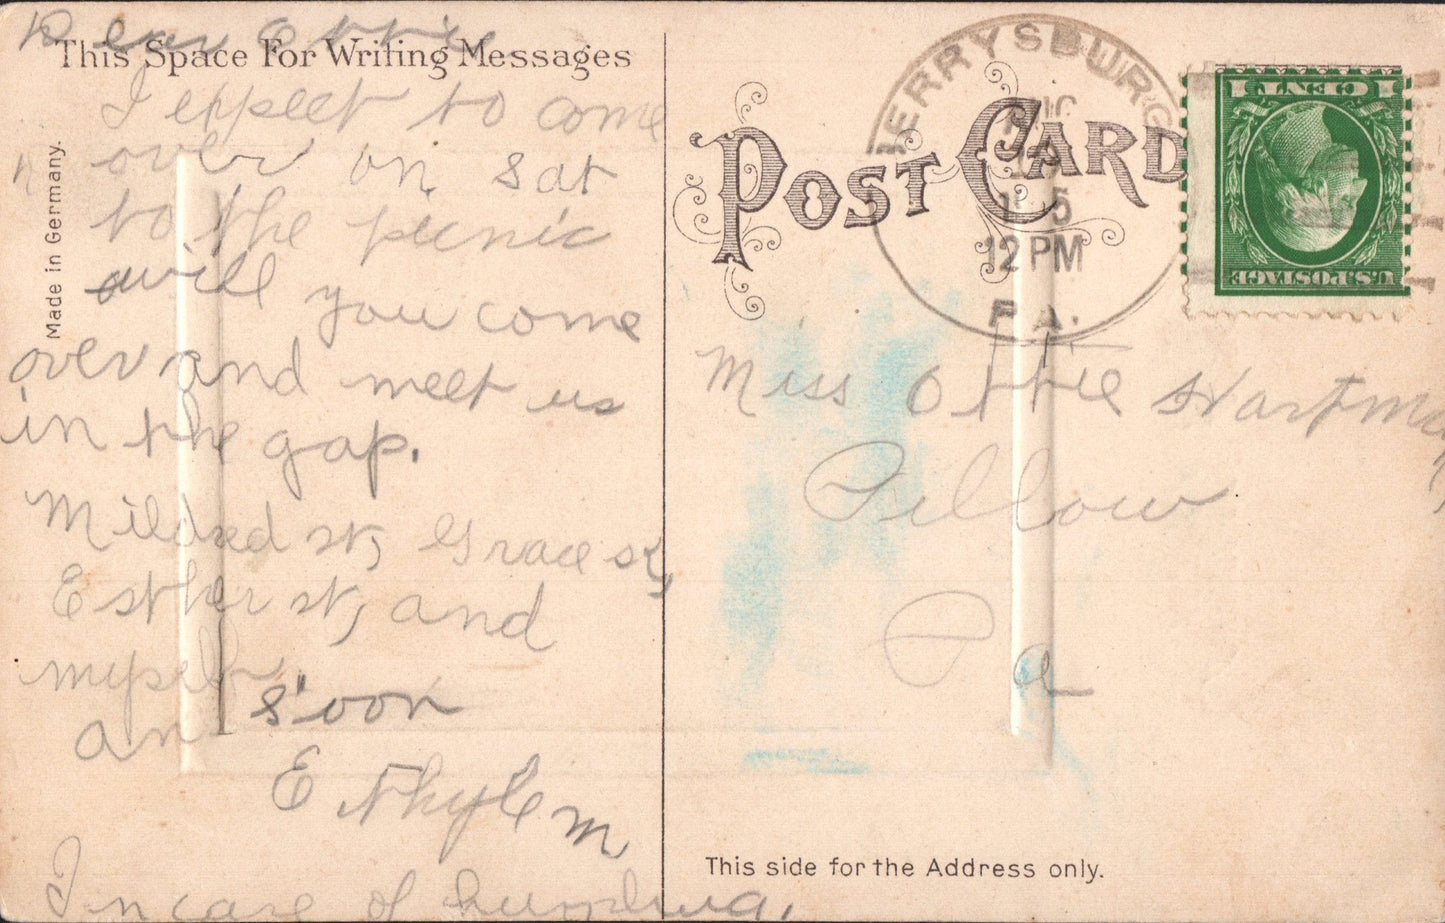 Dear Ottie
This Space For Writing Messages
I expect to come
over on Sat
to the picnic
will you come
over and meet us
in the gap.
Mildred st, Grace st,
Esther st, and
myself
an soon
Ethyle m
In care of
Made in Germany.
POST CARD
BERRYSBURG
12 PM
PA.
1 CENT 1
U.S. POSTAGE
Miss Ottie Hartman
Pillow
Pa
This side for the Address only.